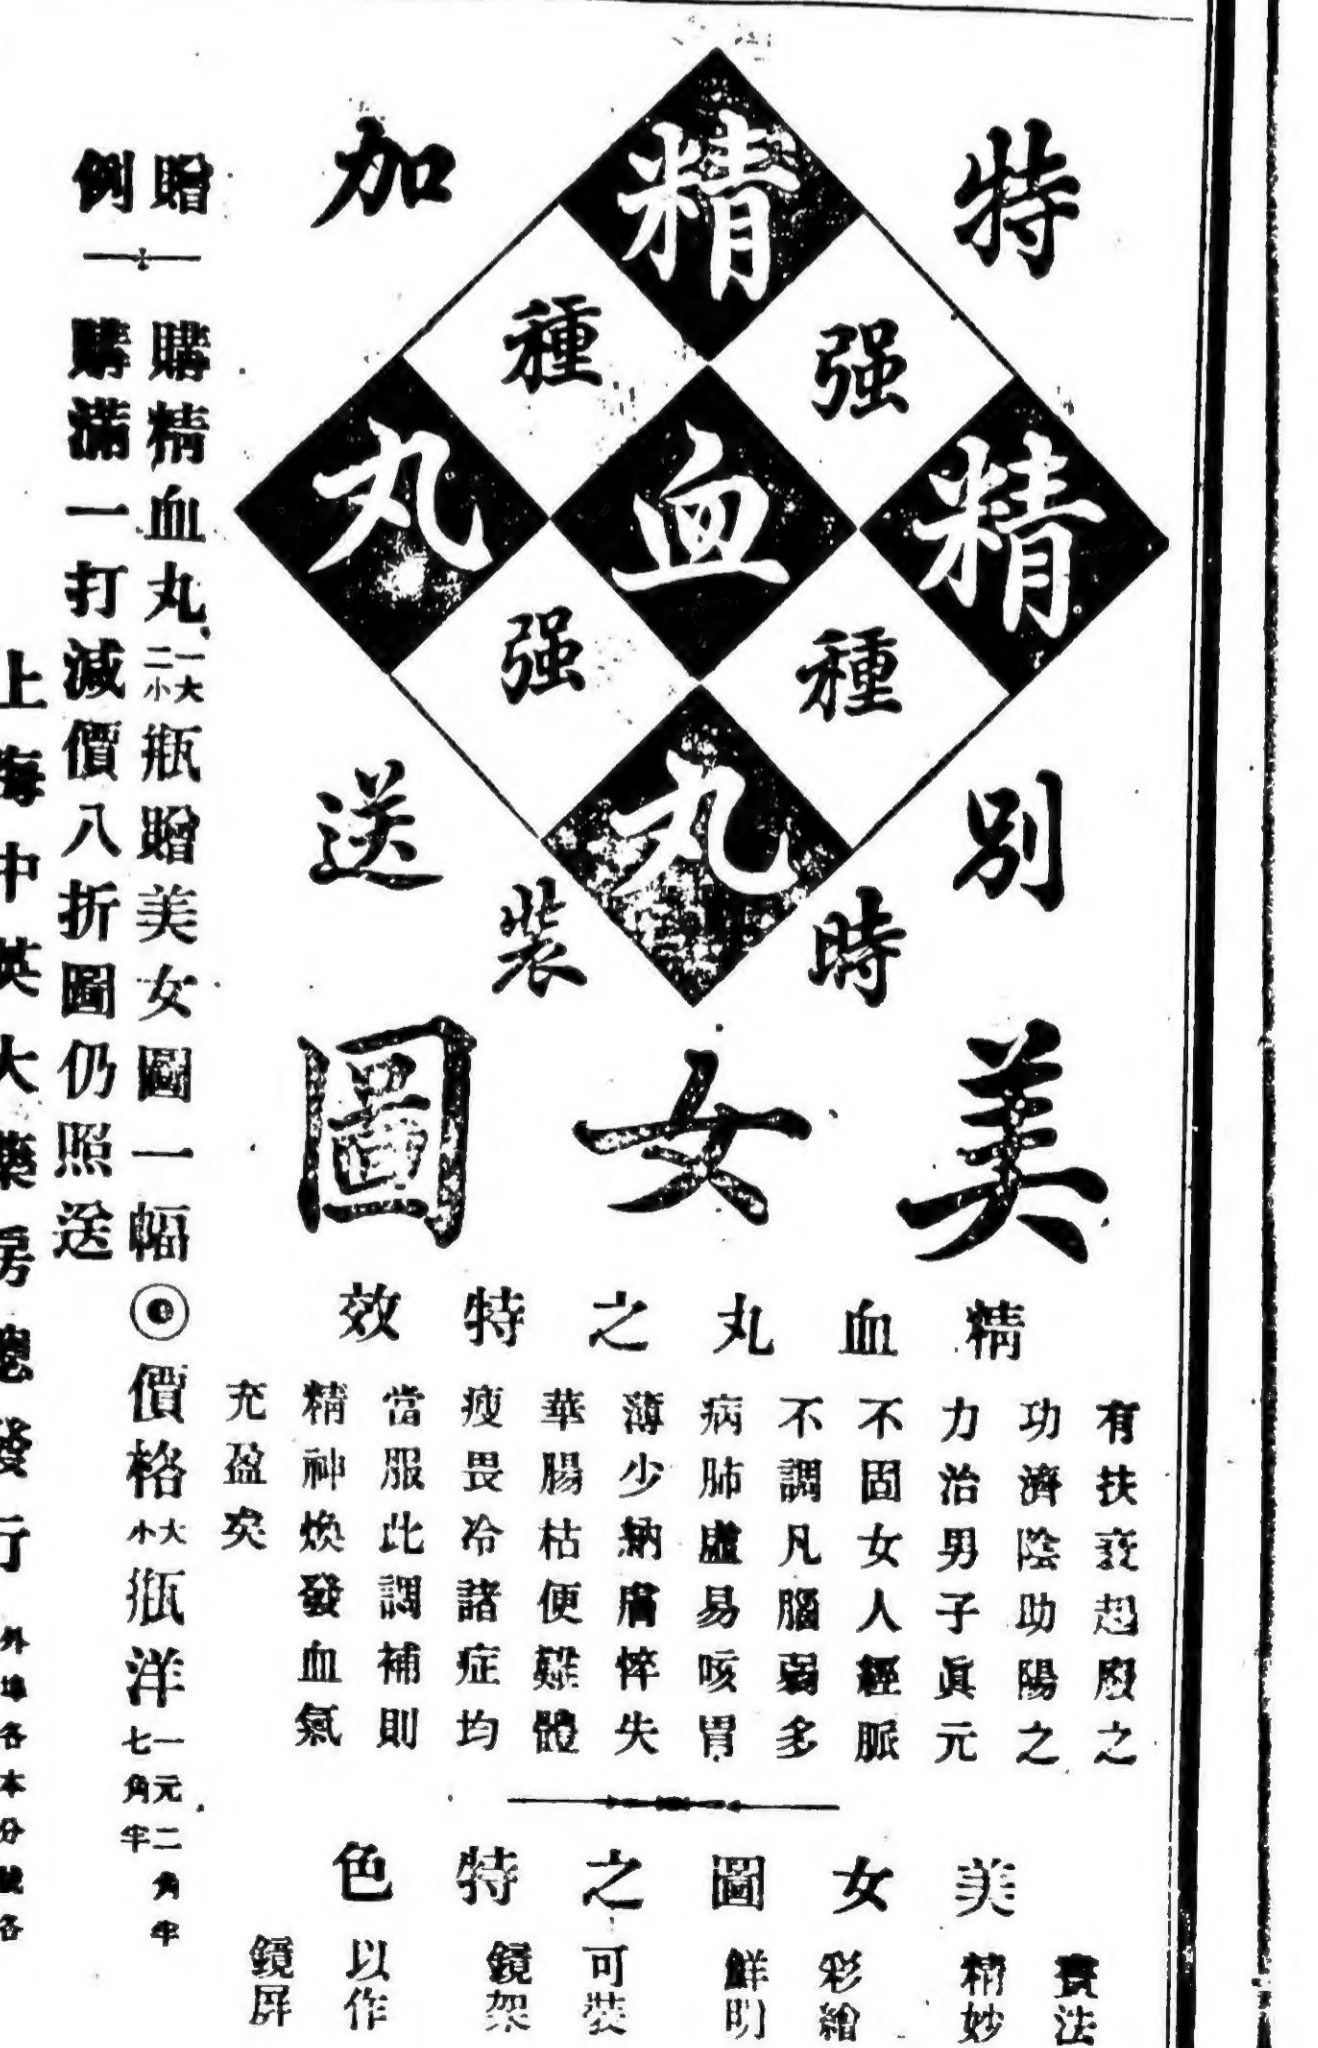 特別加送
精血丸
精血丸
强種
强種
時裝
美女圖
精血丸之特效
有扶衰起廢之
功濟陰助陽之
力治男子眞元
不固女人經脈
不調凡腦弱多
病肺虛易咳胃
薄少納膚悴失
華腸枯便難體
瘦畏冷諸症均
當服此調補則
精神煥發血氣
充盈矣
美女圖之特色
畫法
精妙
彩繪
鮮明
可裝
鏡架
以作
鏡屏
贈例
購精血丸一大二小瓶贈美女圖一幅
價格大小瓶洋一元二角半七角半
購滿一打減價八折圖仍照送
上海中英大藥房總發行
外埠各本分號各